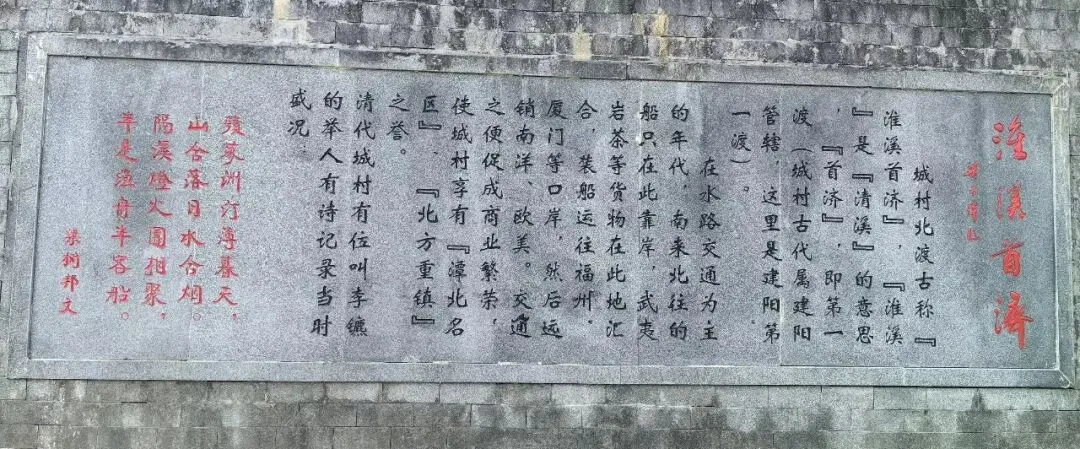 淮溪首濟
城村北渡古称『
淮溪首济』,『淮溪
』是『清溪』的意思
,『首济』,即第一
渡(城村古代属建阳
管辖,这里是建阳第
一渡)。
在水路交通为主
的年代,南来北往的
船只在此靠岸,武夷
岩茶等货物在此地汇
合,装船运往福州、
厦门等口岸,然后远
销南洋、欧美。交通
之便促成商业繁荣,
使城村享有『潭北名
区』、『北方重镇』
之誉。
清代城村有位叫李
的举人有诗记录当时
盛况:
洲汀薄暮天,
山含落日水含烟。
隔溪燈火團相聚,
半是渔舟半客船。
梁邦文